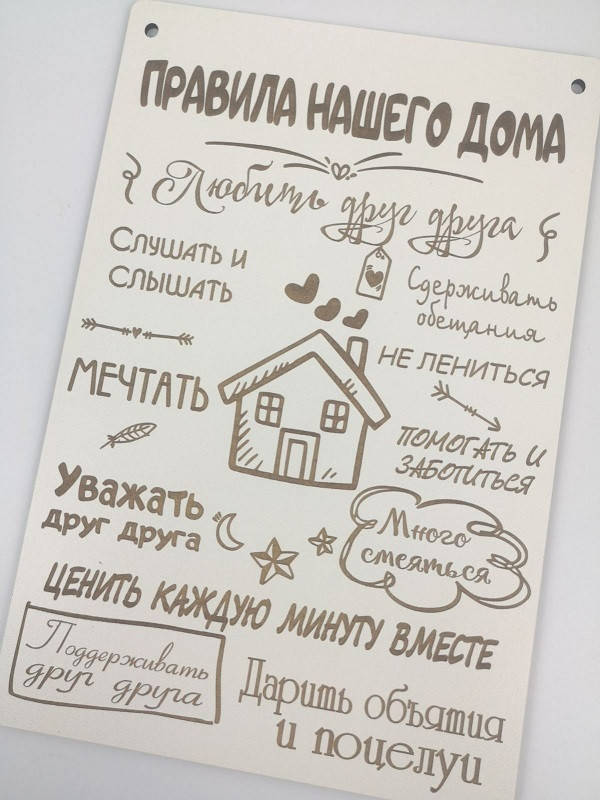 ПРАВИЛА НАШЕГО ДОМА
Любить друг друга
Слушать и
слышать
Сдерживать
обещания
НЕ ЛЕНИТЬСЯ
МЕЧТАТЬ
ПОМОГАТЬ И
ЗАБОТИТЬСЯ
Уважать
друг друга
Много
смеяться
ЦЕНИТЬ КАЖДУЮ МИНУТУ ВМЕСТЕ
Поддерживать
друг друга
Дарить объятия
и поцелуи